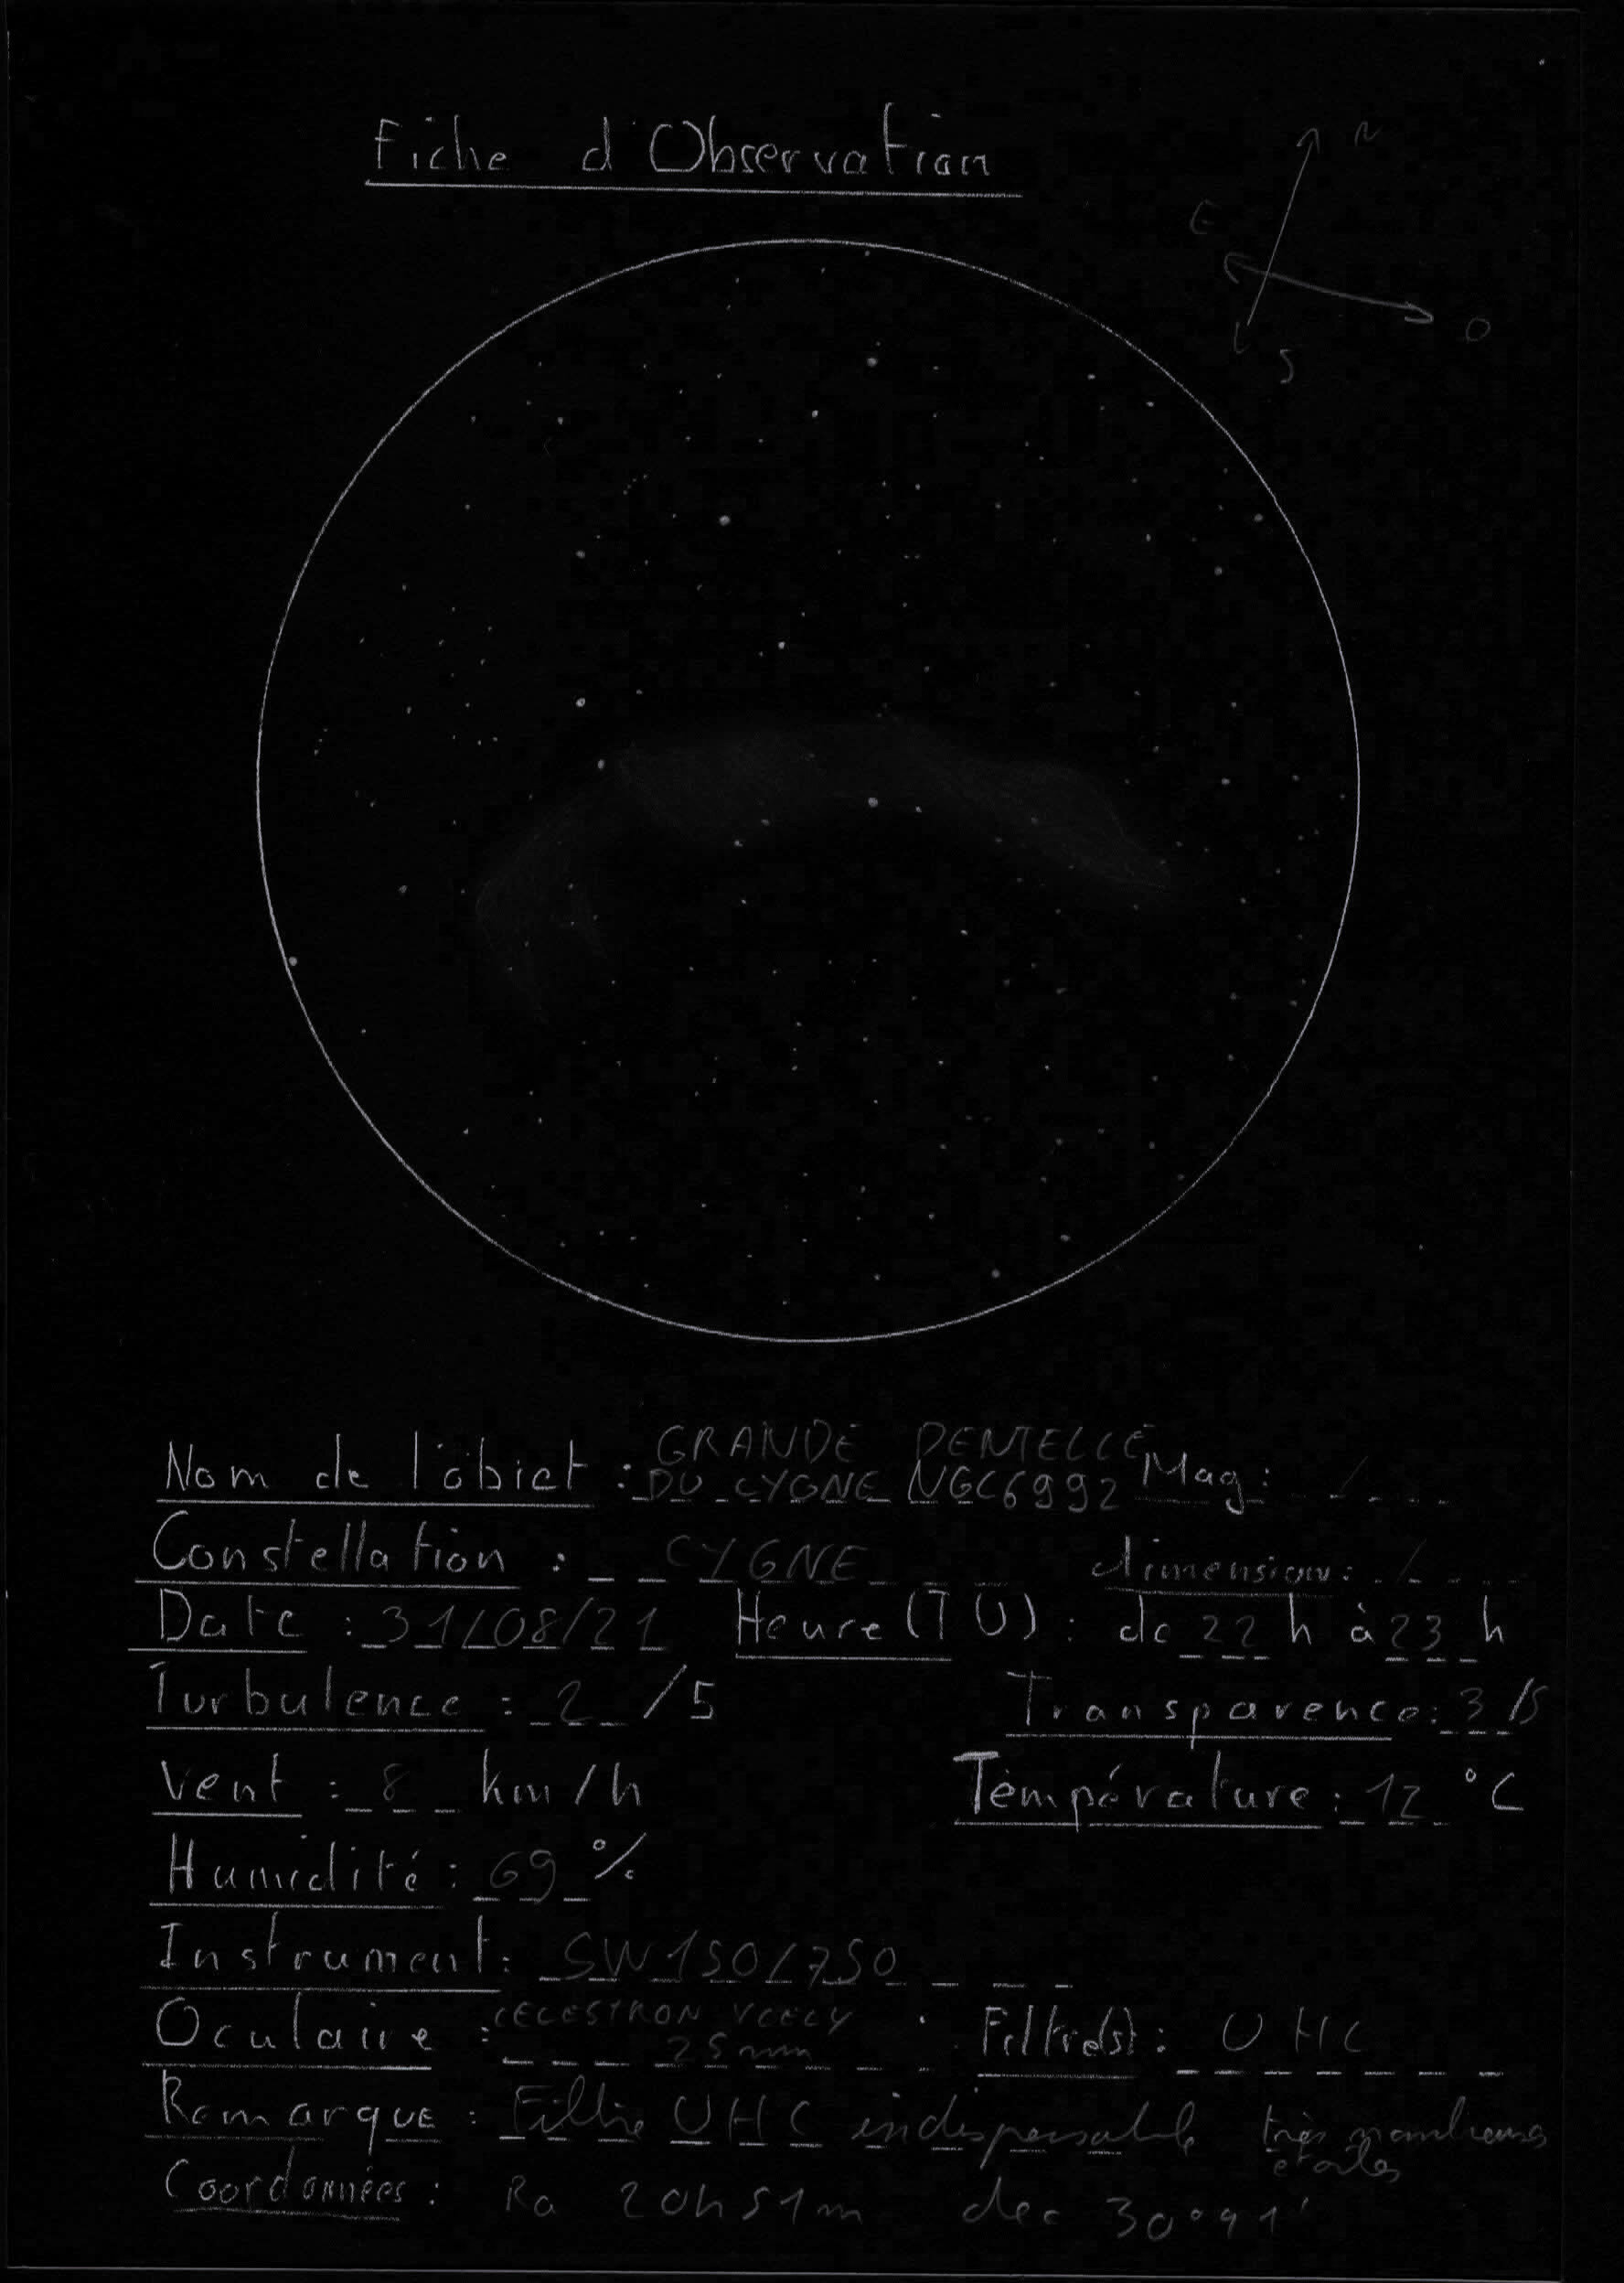 Fiche d'Observation
N
E
O
S
Nom de l'objet : GRANDE DENTELLE
DU CYGNE NGC6992 Mag : /
Constellation : CYGNE dimension : /
Date : 31/08/21 Heure (TU) : de 22 h à 23 h
Turbulence : 2 /5 Transparence : 3 /5
Vent : 8 km/h Température : 12 °C
Humidité : 69 %
Instrument : SW 150/750
Oculaire : CELESTRON
25mm Filtre(s) : UHC
Remarque : Filtre UHC indispensable très nombreuses
étoiles
Coordonnées : Ra 20h51m dec 30°